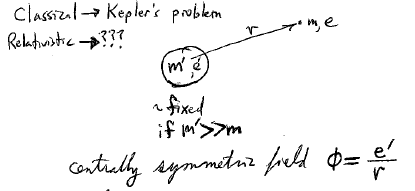 Classical → Kepler's problem
Relativistic → ???
r
m, e
m', e'
~ fixed
if m' >> m
centrally symmetric field ϕ = e'/r